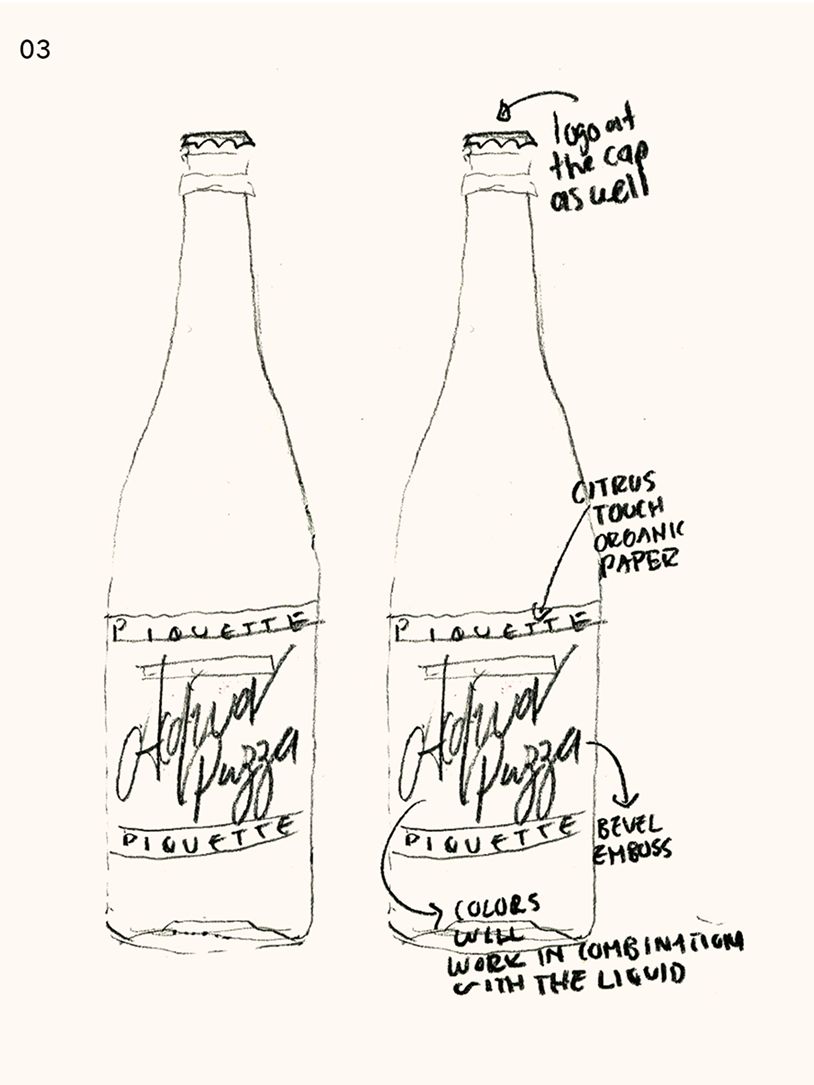 03
logo at
the cap
as well
CITRUS
TOUCH
ORGANIC
PAPER
PIQUETTE
PIQUETTE
Acqua
Puzza
Acqua
Puzza
PIQUETTE
PIQUETTE
BEVEL
EMBOSS
COLORS
WILL
WORK IN COMBINATION
WITH THE LIQUID